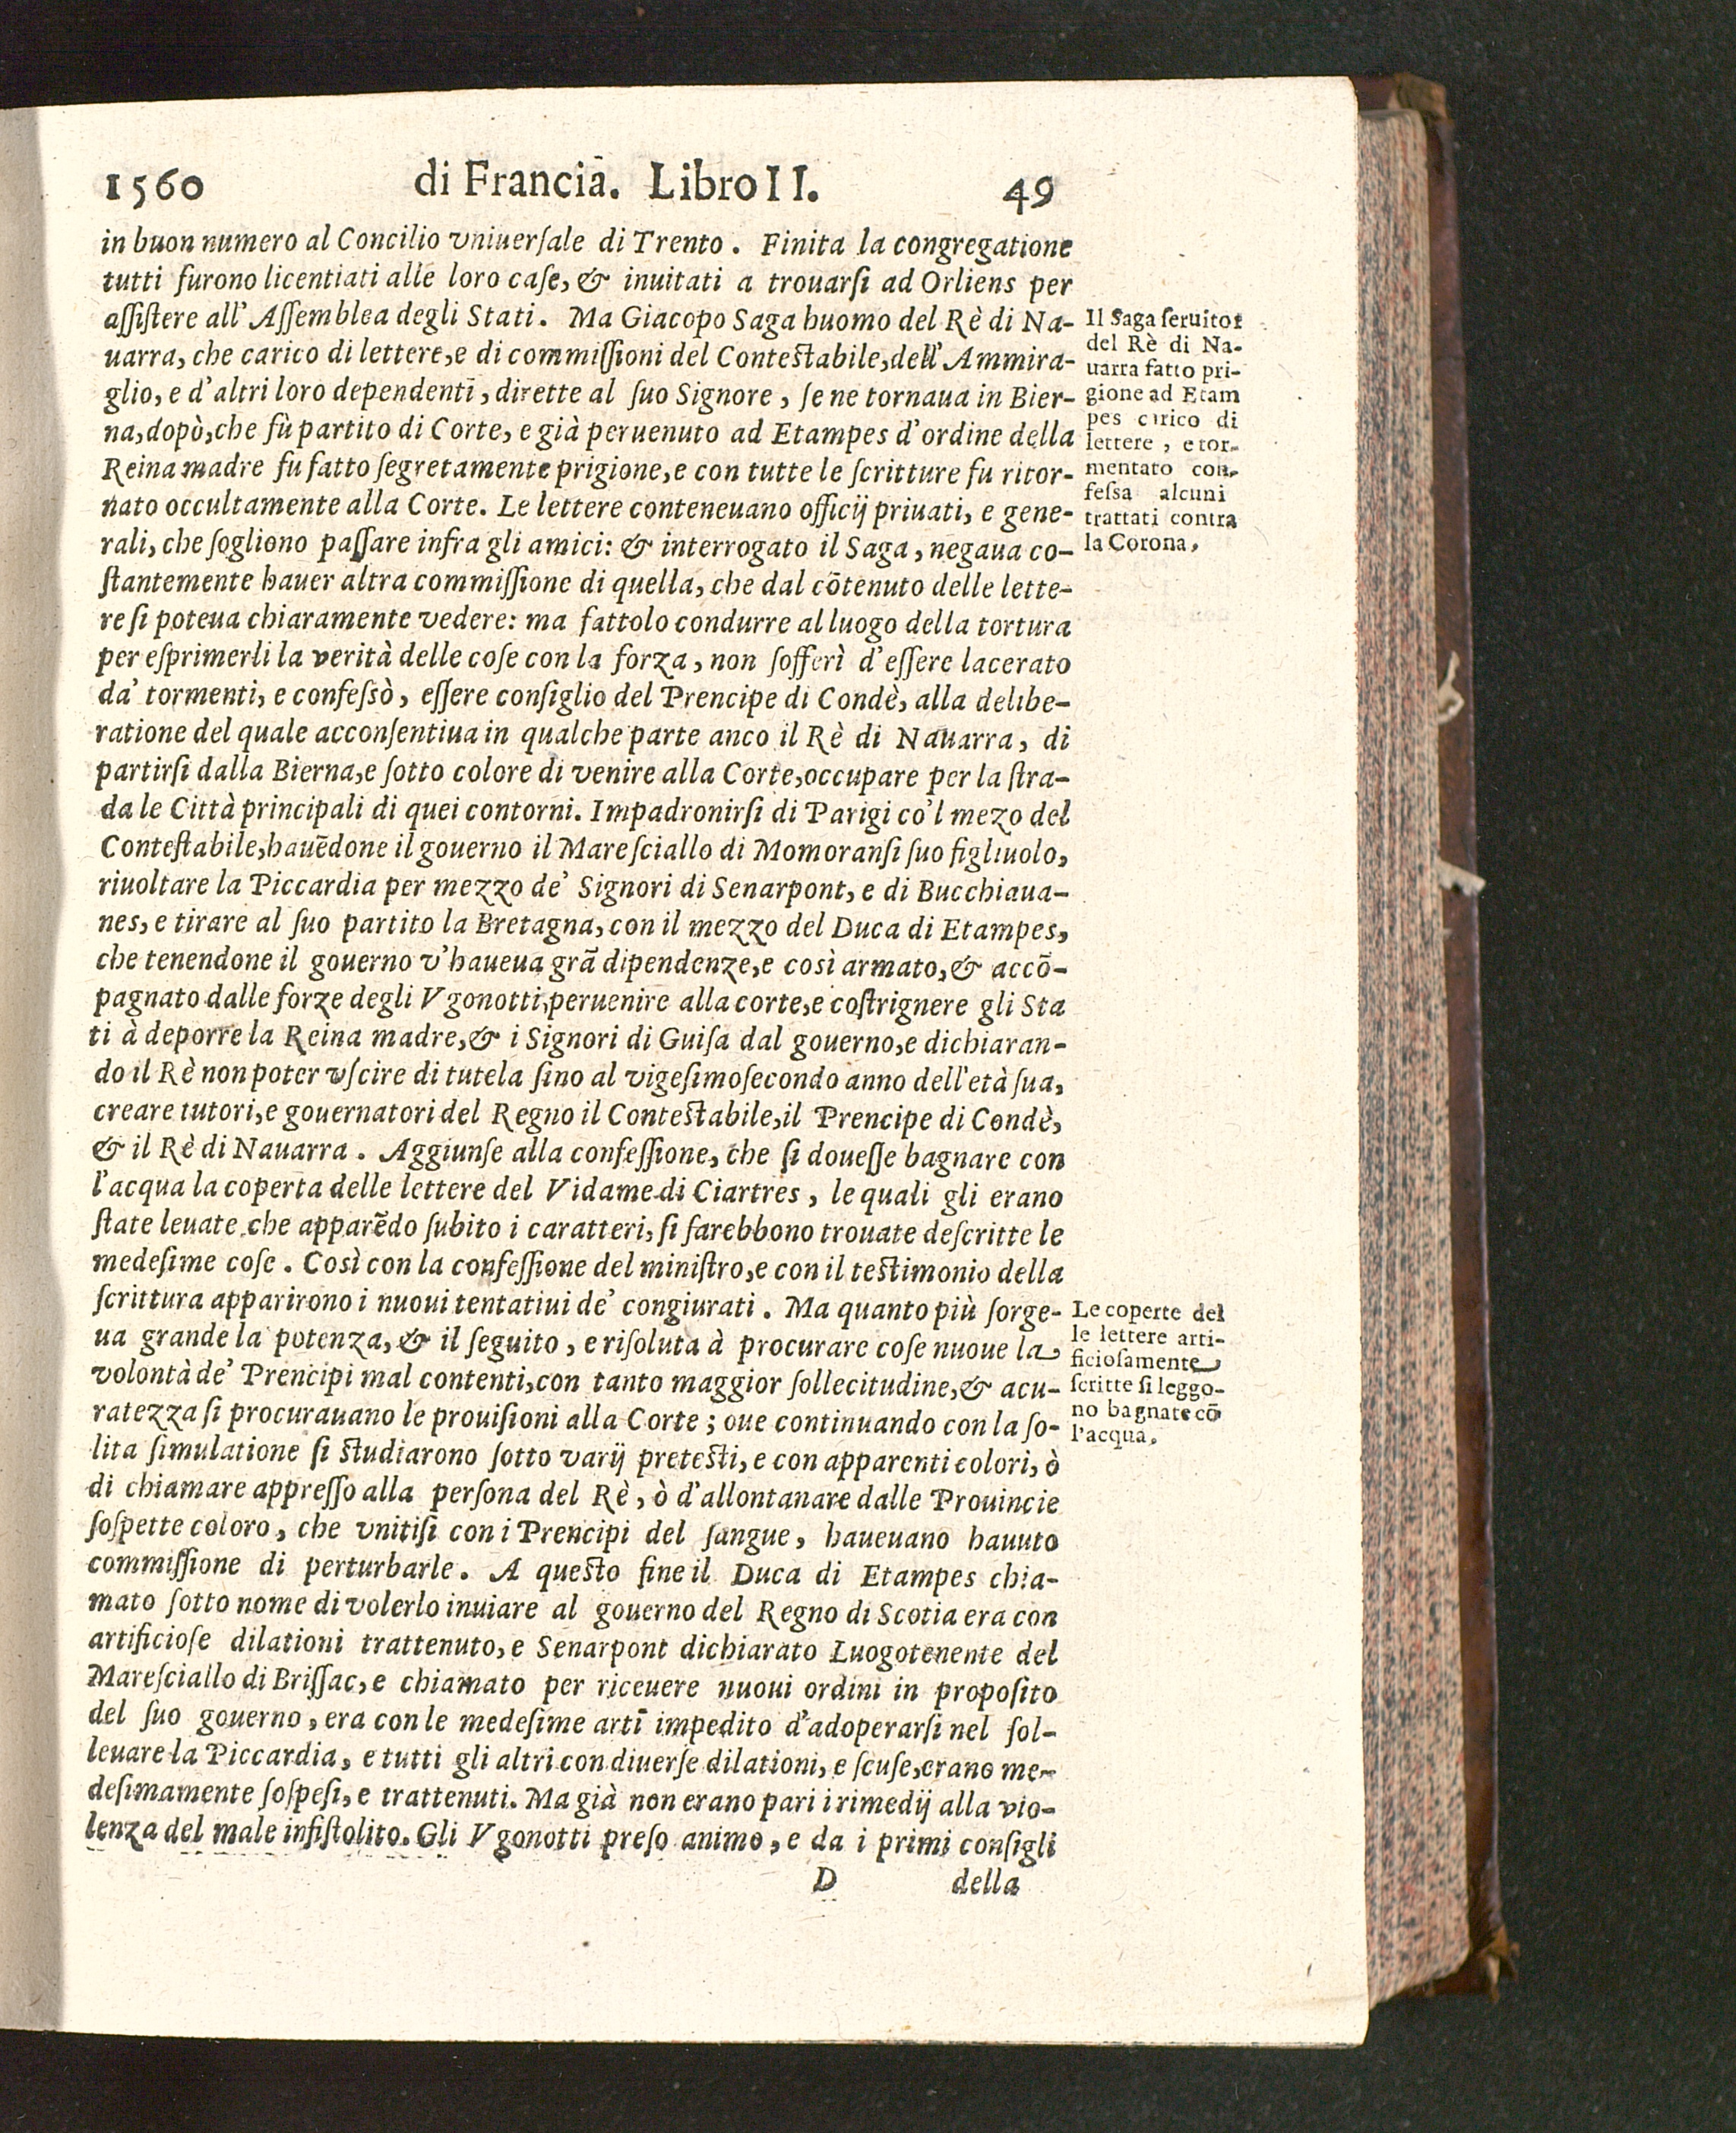 1560 di Francia. Libro II. 49
in buon numero al Concilio vniuerſale di Trento. Finita la congregatione
tutti furono licentiati alle loro caſe, & inuitati a trouarſi ad Orliens per
aſſiſtere all' Aſſemblea degli Stati. Ma Giacopo Saga huomo del Rè di Na-
uarra, che carico di lettere, e di commiſſioni del Conteſtabile, dell' Ammira-
glio, e d'altri loro dependenti, dirette al ſuo Signore, ſe ne tornaua in Bier-
na, dopò, che fù partito di Corte, e già peruenuto ad Etampes d'ordine della
Reina madre fu fatto ſegretamente prigione, e con tutte le ſcritture fu ritor-
nato occultamente alla Corte. Le lettere conteneuano officij priuati, e gene-
rali, che ſogliono paſſare infra gli amici: & interrogato il Saga, negaua co-
ſtantemente hauer altra commiſſione di quella, che dal cōtenuto delle lette-
re ſi poteua chiaramente vedere: ma fattolo condurre al luogo della tortura
per eſprimerli la verità delle coſe con la forza, non ſofferì d'eſſere lacerato
da' tormenti, e confeſsò, eſſere conſiglio del Prencipe di Condè, alla delibe-
ratione del quale acconſentiua in qualche parte anco il Rè di Nauarra, di
partirſi dalla Bierna, e ſotto colore di venire alla Corte, occupare per la ſtra-
da le Città principali di quei contorni. Impadronirſi di Parigi co'l mezo del
Conteſtabile, hauēdone il gouerno il Mareſciallo di Momoranſi ſuo figliuolo,
riuoltare la Piccardia per mezzo de' Signori di Senarpont, e di Bucchiaua-
nes, e tirare al ſuo partito la Bretagna, con il mezzo del Duca di Etampes,
che tenendone il gouerno v'haueua grā dipendenze, e così armato, & accō-
pagnato dalle forze degli Vgonotti, peruenire alla corte, e coſtrignere gli Sta
ti à deporre la Reina madre, & i Signori di Guiſa dal gouerno, e dichiaran-
do il Rè non poter vſcire di tutela ſino al vigeſimoſecondo anno dell'età ſua,
creare tutori, e gouernatori del Regno il Conteſtabile, il Prencipe di Condè,
& il Rè di Nauarra. Aggiunſe alla confeſſione, che ſi doueſſe bagnare con
l'acqua la coperta delle lettere del Vidame di Ciartres, le quali gli erano
ſtate leuate, che apparēdo ſubito i caratteri, ſi farebbono trouate deſcritte le
medeſime coſe. Così con la confeſſione del miniſtro, e con il teſtimonio della
ſcrittura apparirono i nuoui tentatiui de' congiurati. Ma quanto più ſorge-
ua grande la potenza, & il ſeguito, e riſoluta à procurare coſe nuoue la
volontà de' Prencipi mal contenti, con tanto maggior ſollecitudine, & acu-
ratezza ſi procurauano le prouiſioni alla Corte; oue continuando con la ſo-
lita ſimulatione ſi ſtudiarono ſotto varij preteſti, e con apparenti colori, ò
di chiamare appreſſo alla perſona del Rè, ò d'allontanare dalle Prouincie
ſoſpette coloro, che vnitiſi con i Prencipi del ſangue, haueuano hauuto
commiſſione di perturbarle. A queſto fine il Duca di Etampes chia-
mato ſotto nome di volerlo inuiare al gouerno del Regno di Scotia era con
artificioſe dilationi trattenuto, e Senarpont dichiarato Luogotenente del
Mareſciallo di Briſſac, e chiamato per riceuere nuoui ordini in propoſito
del ſuo gouerno, era con le medeſime arti impedito d'adoperarſi nel ſol-
leuare la Piccardia, e tutti gli altri con diuerſe dilationi, e ſcuſe, erano me-
deſimamente ſoſpeſi, e trattenuti. Ma già non erano pari i rimedij alla vio-
lenza del male infiſtolito. Gli Vgonotti preſo animo, e da i primi conſigli
D della
Il Saga ſeruitor
del Rè di Na-
uarra fatto pri-
gione ad Etam
pes carico di
lettere, e tor-
mentato con-
feſſa alcuni
trattati contra
la Corona,
Le coperte del
le lettere arti-
ficioſamente
ſcritte ſi leggo-
no bagnate cō
l'acqua.